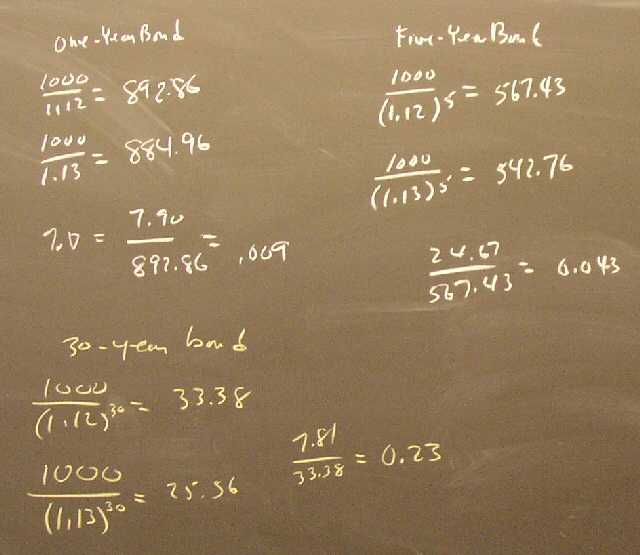 One-Year Bond
1000/1.12 = 892.86
1000/1.13 = 884.96
%D = 7.90/892.86 = .009
Five-Year Bond
1000/(1.12)5 = 567.43
1000/(1.13)5 = 542.76
24.67/567.43 = 0.043
30-year bond
1000/(1.12)^30 = 33.38
1000/(1.13)^30 = 25.56
7.81/33.38 = 0.23